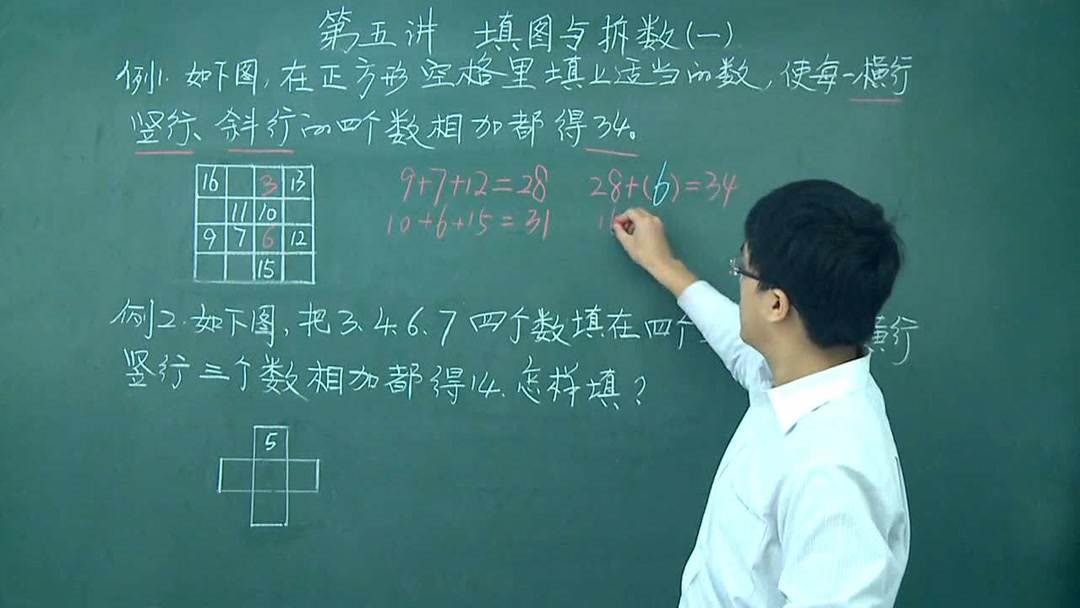 第五讲 填图与拆数(一)
例1. 如下图,在正方形空格里填上适当的数,使每一横行
竖行、斜行的四个数相加都得34。
16 3 13
11 10
9 7 6 12
15
9+7+12=28 28+(6)=34
10+6+15=31
例2.如下图,把3.4.6.7四个数填在四个 横行
竖行三个数相加都得14.怎样填?
5